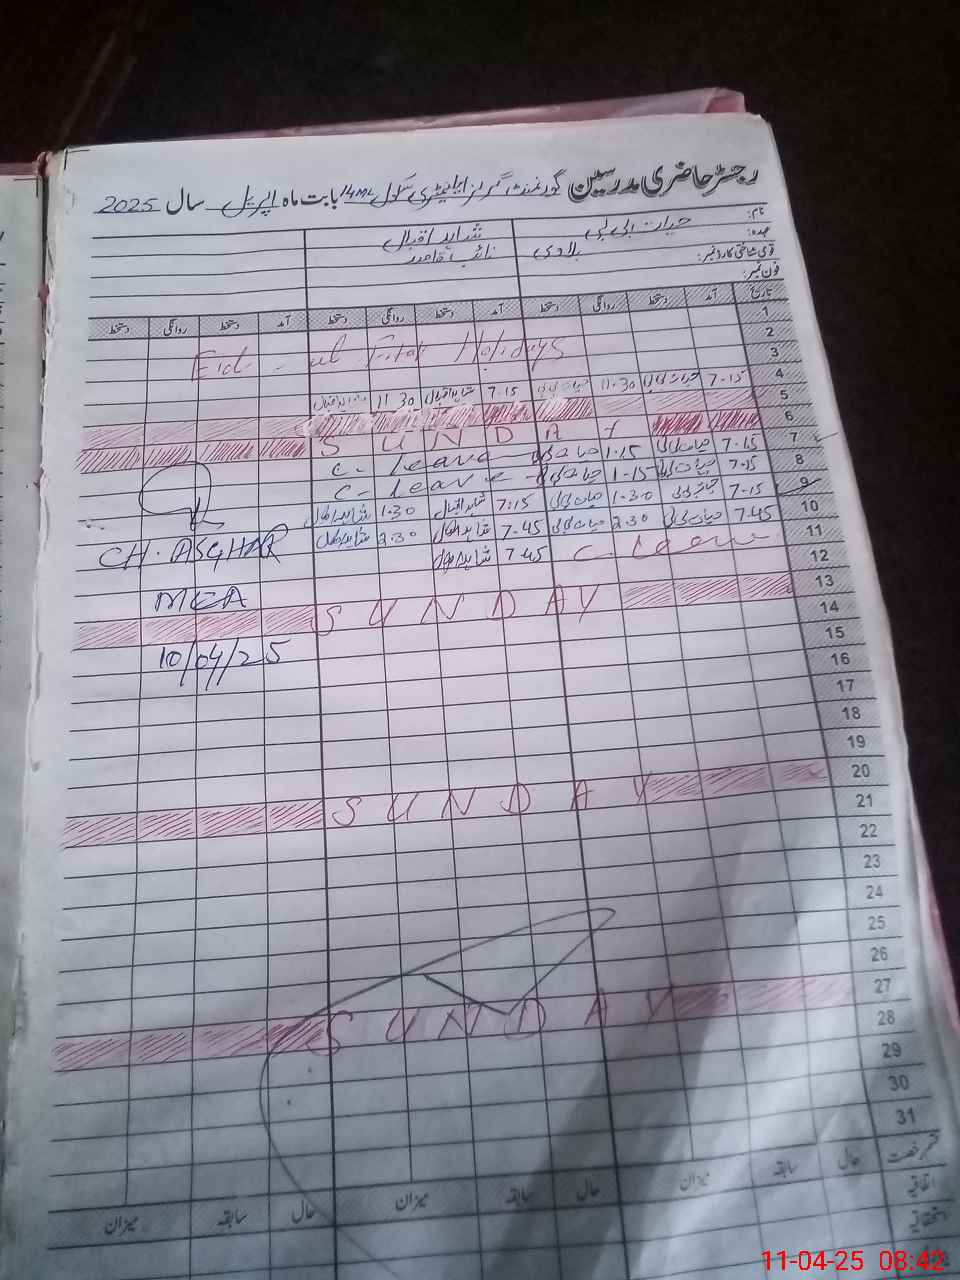 رجسٹر حاضری مدرسین گورنمنٹ گرلز ایلیمنٹری سکول بابت ماہ اپریل سال 2025
نام: حیات بی بی شاہد اقبال
عہدہ: نائب قاصد
قومی شناختی کارڈ نمبر:
فون نمبر:
تاریخ آمد دستخط روانگی دستخط آمد دستخط روانگی دستخط آمد دستخط روانگی دستخط
1
2
Eid - ul Fitar Holidays
3
4 7-15 حیات بی بی 11-30 حیات بی بی 7-15 شاہد اقبال 11-30 شاہد اقبال
5
6 SUNDAY
7 7-15 حیات بی بی 1-15 حیات بی بی C. leave
8 7-15 حیات بی بی 1-15 حیات بی بی C. leave
9 7-15 حیات بی بی 1-30 حیات بی بی 7-15 شاہد اقبال 1-30 شاہد اقبال
10 7-45 حیات بی بی 2-30 حیات بی بی 7-45 شاہد اقبال 2-30 شاہد اقبال
11 C. Leave 7-45 شاہد اقبال
CH. ASGHAR
12
13 SUNDAY
MEA
14
10/04/25
15
16
17
18
19
20 SUNDAY
21
22
23
24
25
26
27 SUNDAY
28
29
30
31
قسم رخصت حال سابقہ میزان حال سابقہ میزان حال سابقہ میزان
اتفاقیہ
استحقاقیہ
11-04-25 08:42